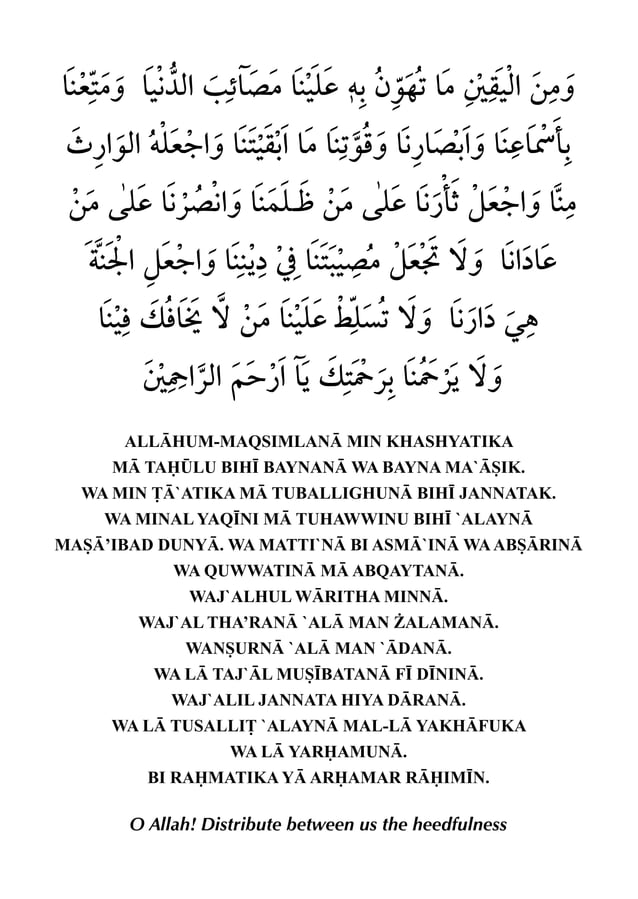 وَمِنَ الْيَقِيْنِ مَا تُهَوِّنُ بِهٖ عَلَيْنَا مَصَآئِبَ الدُّنْيَا وَمَتِّعْنَا
بِأَسْمَاعِنَا وَاَبْصَارِنَا وَقُوَّتِنَا مَا اَبْقَيْتَنَا وَاجْعَلْهُ الوَارِثَ
مِنَّا وَاجْعَلْ ثَأْرَنَا عَلٰى مَنْ ظَـلَمَنَا وَانْصُرْنَا عَلٰى مَنْ
عَادَانَا وَلَا تَجْعَلْ مُصِيْبَتَنَا فِيْ دِيْنِنَا وَاجْعَلِ الْجَنَّةَ
هِيَ دَارَنَا وَلَا تُسَلِّطْ عَلَيْنَا مَنْ لَّا يَخَافُكَ فِيْنَا
وَلَا يَرْحَمُنَا بِرَحْمَتِكَ يَآ اَرْحَمَ الرَّاحِمِيْنَ
ALLĀHUM-MAQSIMLANĀ MIN KHASHYATIKA
MĀ TAḤŪLU BIHĪ BAYNANĀ WA BAYNA MA`ĀṢIK.
WA MIN ṬĀ`ATIKA MĀ TUBALLIGHUNĀ BIHĪ JANNATAK.
WA MINAL YAQĪNI MĀ TUHAWWINU BIHĪ `ALAYNĀ
MAṢĀ’IBAD DUNYĀ. WA MATTI`NĀ BI ASMĀ`INĀ WA ABṢĀRINĀ
WA QUWWATINĀ MĀ ABQAYTANĀ.
WAJ`ALHUL WĀRITHA MINNĀ.
WAJ`AL THA’RANĀ `ALĀ MAN ŻALAMANĀ.
WANṢURNĀ `ALĀ MAN `ĀDANĀ.
WA LĀ TAJ`ĀL MUṢĪBATANĀ FĪ DĪNINĀ.
WAJ`ALIL JANNATA HIYA DĀRANĀ.
WA LĀ TUSALLIṬ `ALAYNĀ MAL-LĀ YAKHĀFUKA
WA LĀ YARḤAMUNĀ.
BI RAḤMATIKA YĀ ARḤAMAR RĀḤIMĪN.
O Allah! Distribute between us the heedfulness